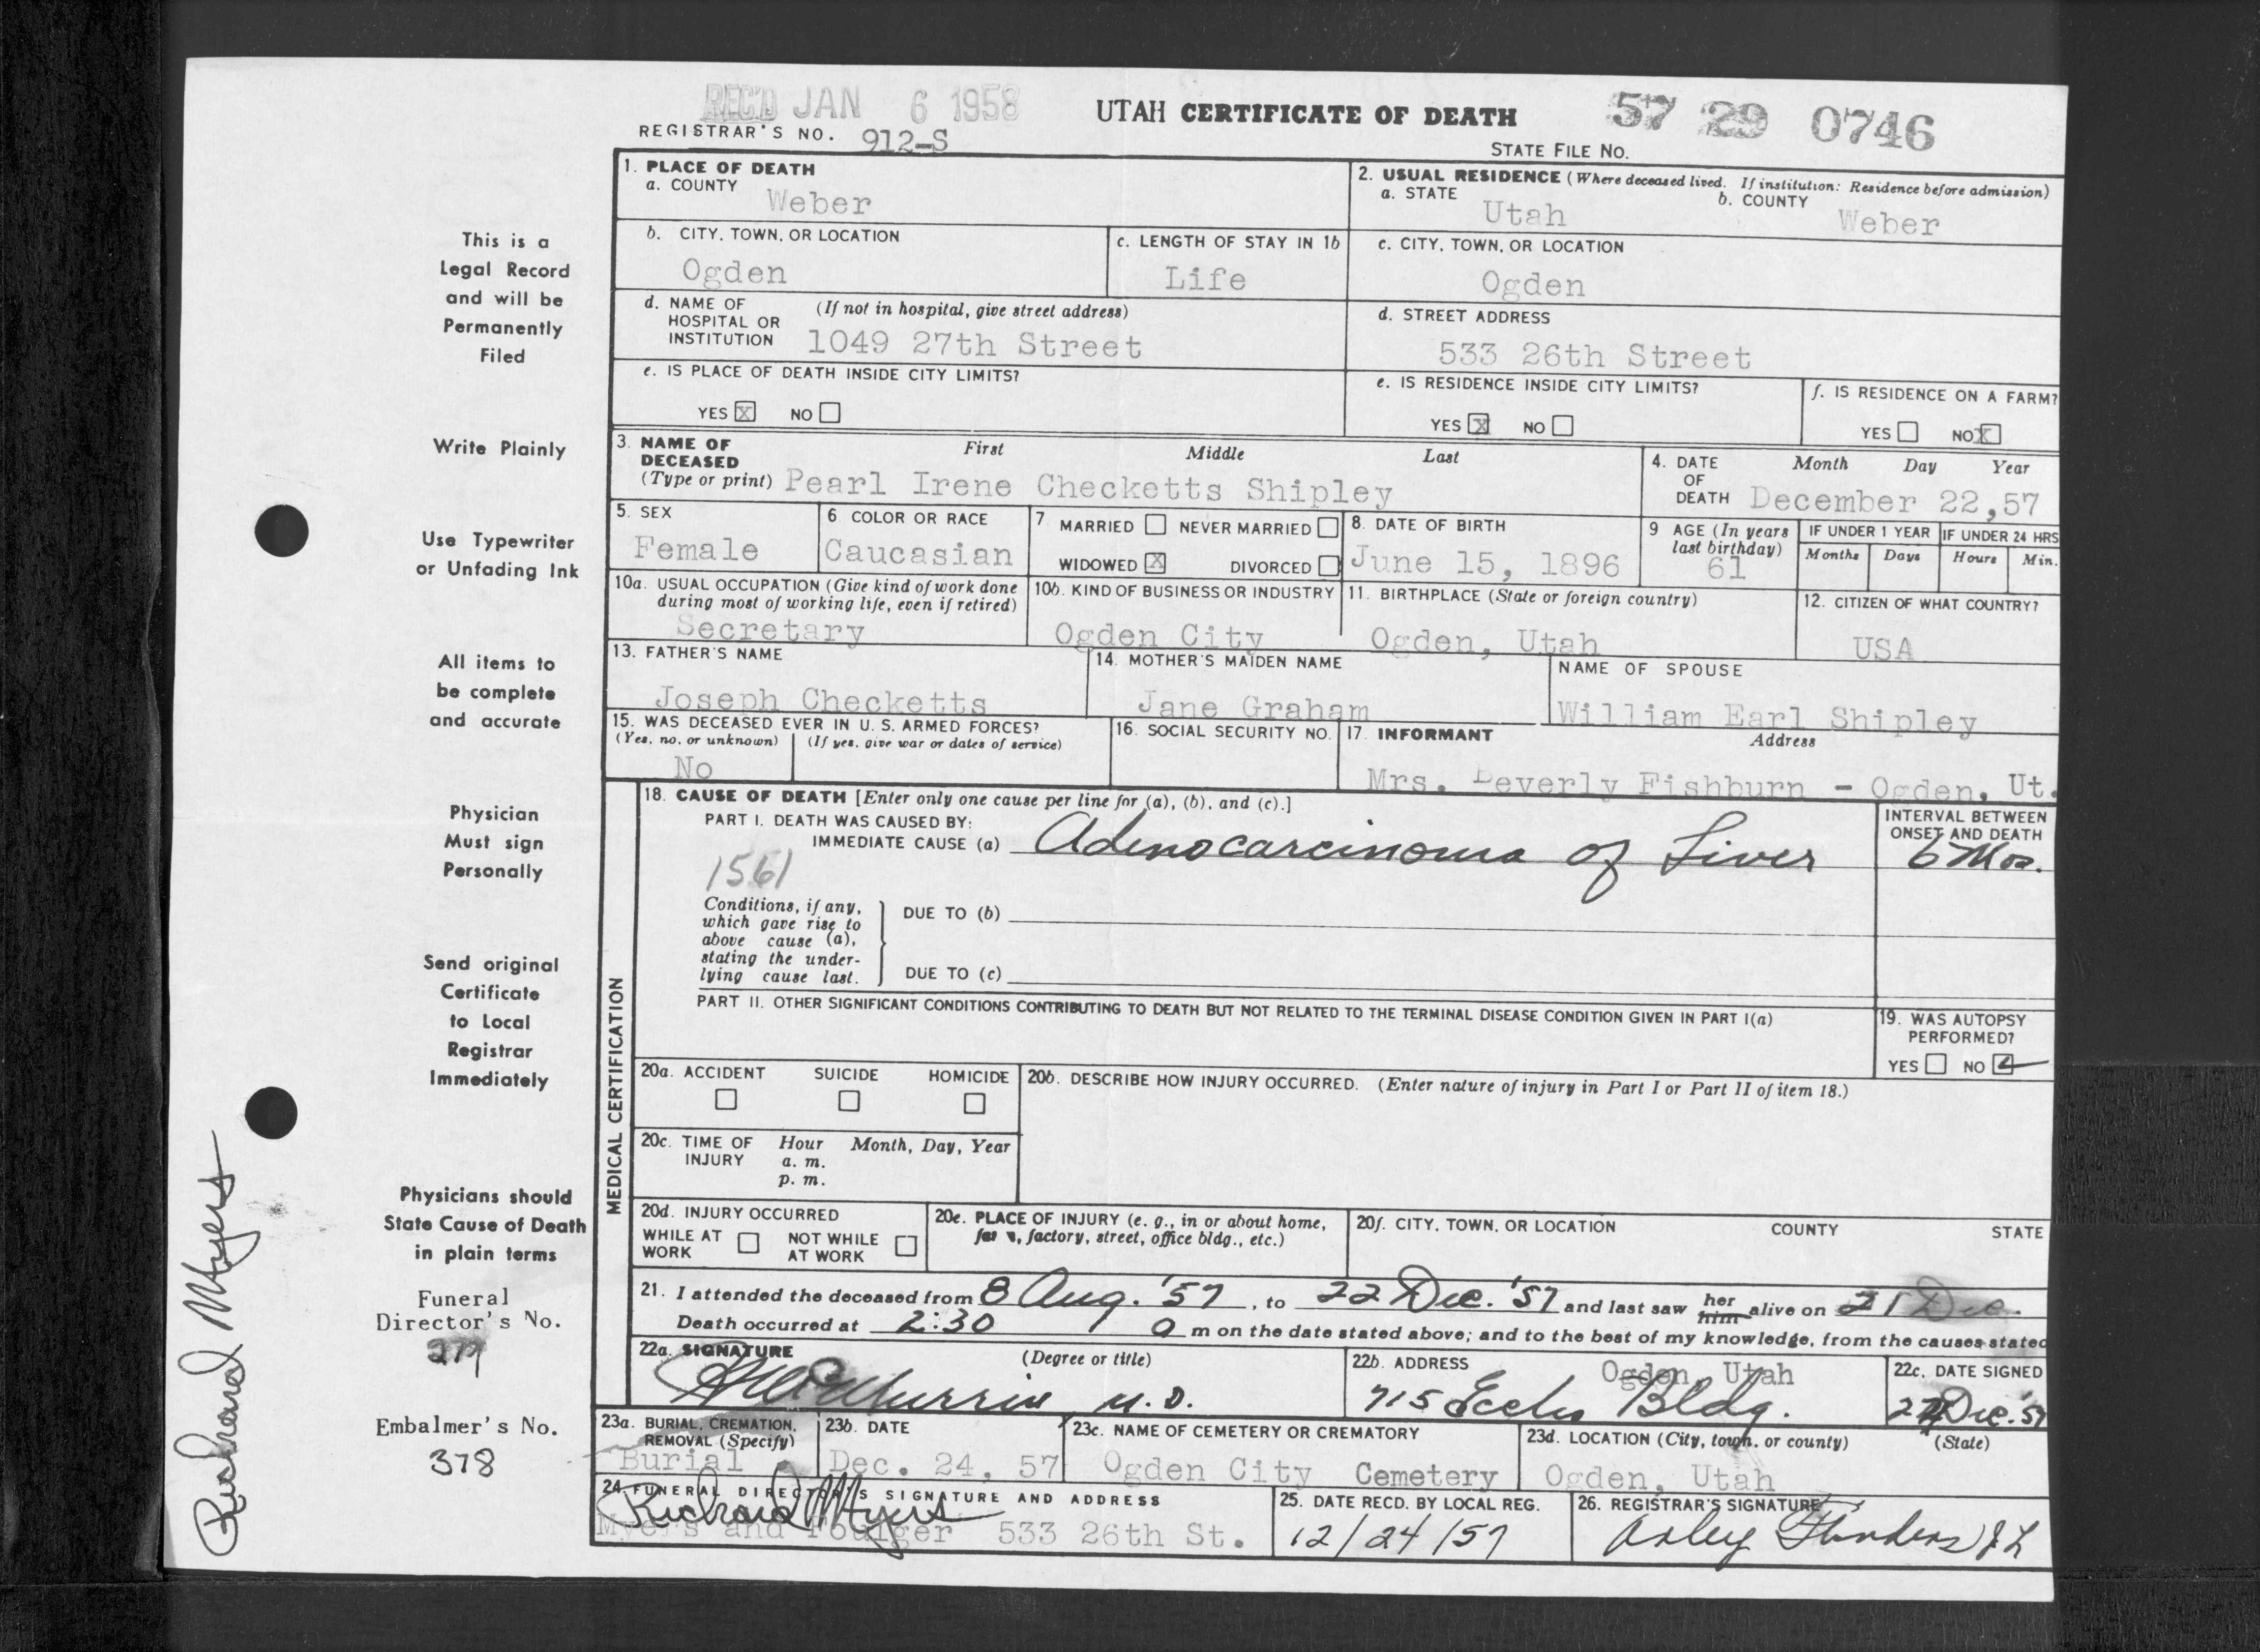 REC'D JAN 6 1958
UTAH CERTIFICATE OF DEATH
57 29 0746
REGISTRAR'S NO. 912-S
STATE FILE NO.
1. PLACE OF DEATH
a. COUNTY Weber
2. USUAL RESIDENCE (Where deceased lived. If institution: Residence before admission)
a. STATE Utah b. COUNTY Weber
b. CITY, TOWN, OR LOCATION Ogden
c. LENGTH OF STAY IN 1b Life
c. CITY, TOWN, OR LOCATION Ogden
d. NAME OF HOSPITAL OR INSTITUTION (If not in hospital, give street address) 1049 27th Street
d. STREET ADDRESS 533 26th Street
e. IS PLACE OF DEATH INSIDE CITY LIMITS?
YES X NO
e. IS RESIDENCE INSIDE CITY LIMITS?
YES X NO
f. IS RESIDENCE ON A FARM?
YES NO X
3. NAME OF DECEASED (Type or print) First Middle Last
Pearl Irene Checketts Shipley
4. DATE OF DEATH Month Day Year
December 22,57
5. SEX Female
6 COLOR OR RACE Caucasian
7. MARRIED NEVER MARRIED
WIDOWED X DIVORCED
8. DATE OF BIRTH June 15, 1896
9 AGE (In years last birthday) 61
IF UNDER 1 YEAR Months Days
IF UNDER 24 HRS Hours Min.
10a. USUAL OCCUPATION (Give kind of work done during most of working life, even if retired)
Secretary
10b. KIND OF BUSINESS OR INDUSTRY
Ogden City
11. BIRTHPLACE (State or foreign country)
Ogden, Utah
12. CITIZEN OF WHAT COUNTRY?
USA
13. FATHER'S NAME
Joseph Checketts
14. MOTHER'S MAIDEN NAME
Jane Graham
NAME OF SPOUSE
William Earl Shipley
15. WAS DECEASED EVER IN U. S. ARMED FORCES?
(Yes, no, or unknown) (If yes, give war or dates of service)
No
16. SOCIAL SECURITY NO.
17. INFORMANT Address
Mrs. Beverly Fishburn - Ogden, Ut.
MEDICAL CERTIFICATION
18. CAUSE OF DEATH [Enter only one cause per line for (a), (b), and (c).]
PART I. DEATH WAS CAUSED BY:
IMMEDIATE CAUSE (a) Adenocarcinoma of Liver
INTERVAL BETWEEN ONSET AND DEATH
6 Mos.
1561
Conditions, if any, which gave rise to above cause (a), stating the underlying cause last.
DUE TO (b)
DUE TO (c)
PART II. OTHER SIGNIFICANT CONDITIONS CONTRIBUTING TO DEATH BUT NOT RELATED TO THE TERMINAL DISEASE CONDITION GIVEN IN PART I(a)
19. WAS AUTOPSY PERFORMED?
YES NO
20a. ACCIDENT SUICIDE HOMICIDE
20b. DESCRIBE HOW INJURY OCCURRED. (Enter nature of injury in Part I or Part II of item 18.)
20c. TIME OF INJURY Hour Month, Day, Year
a. m.
p. m.
20d. INJURY OCCURRED
WHILE AT WORK NOT WHILE AT WORK
20e. PLACE OF INJURY (e. g., in or about home, factory, street, office bldg., etc.)
20f. CITY, TOWN, OR LOCATION COUNTY STATE
21. I attended the deceased from 8 Aug. '57, to 22 Dec. '57 and last saw her him alive on 21 Dec.
Death occurred at 2:30 a m on the date stated above; and to the best of my knowledge, from the causes stated
22a. SIGNATURE (Degree or title)
M.D.
22b. ADDRESS Ogden, Utah
715 Eccles Bldg.
22c. DATE SIGNED
Dec. '57
23a. BURIAL, CREMATION, REMOVAL (Specify)
Burial
23b. DATE
Dec. 24, 57
23c. NAME OF CEMETERY OR CREMATORY
Ogden City Cemetery
23d. LOCATION (City, town, or county) (State)
Ogden, Utah
24. FUNERAL DIRECTOR'S SIGNATURE AND ADDRESS
Richard Myers
Myers and Foulger 533 26th St.
25. DATE RECD. BY LOCAL REG.
12/24/57
26. REGISTRAR'S SIGNATURE
This is a
Legal Record
and will be
Permanently
Filed
Write Plainly
Use Typewriter
or Unfading Ink
All items to
be complete
and accurate
Physician
Must sign
Personally
Send original
Certificate
to Local
Registrar
Immediately
Physicians should
State Cause of Death
in plain terms
Funeral
Director's No.
Embalmer's No.
378
Richard Myers